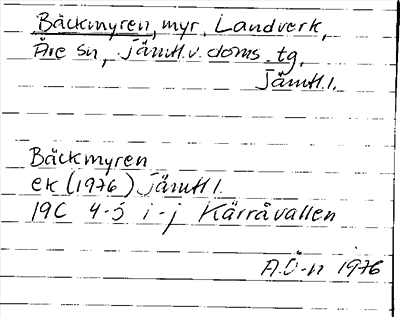 Bäckmyren, myr, Landverk,
Åre sn, Jämtl. v. doms. tg,
Jämtl. l.
Bäckmyren
ek (1976) Jämtl l.
19C 4-5 i-j Kärråvallen
A.Ö-n 1976